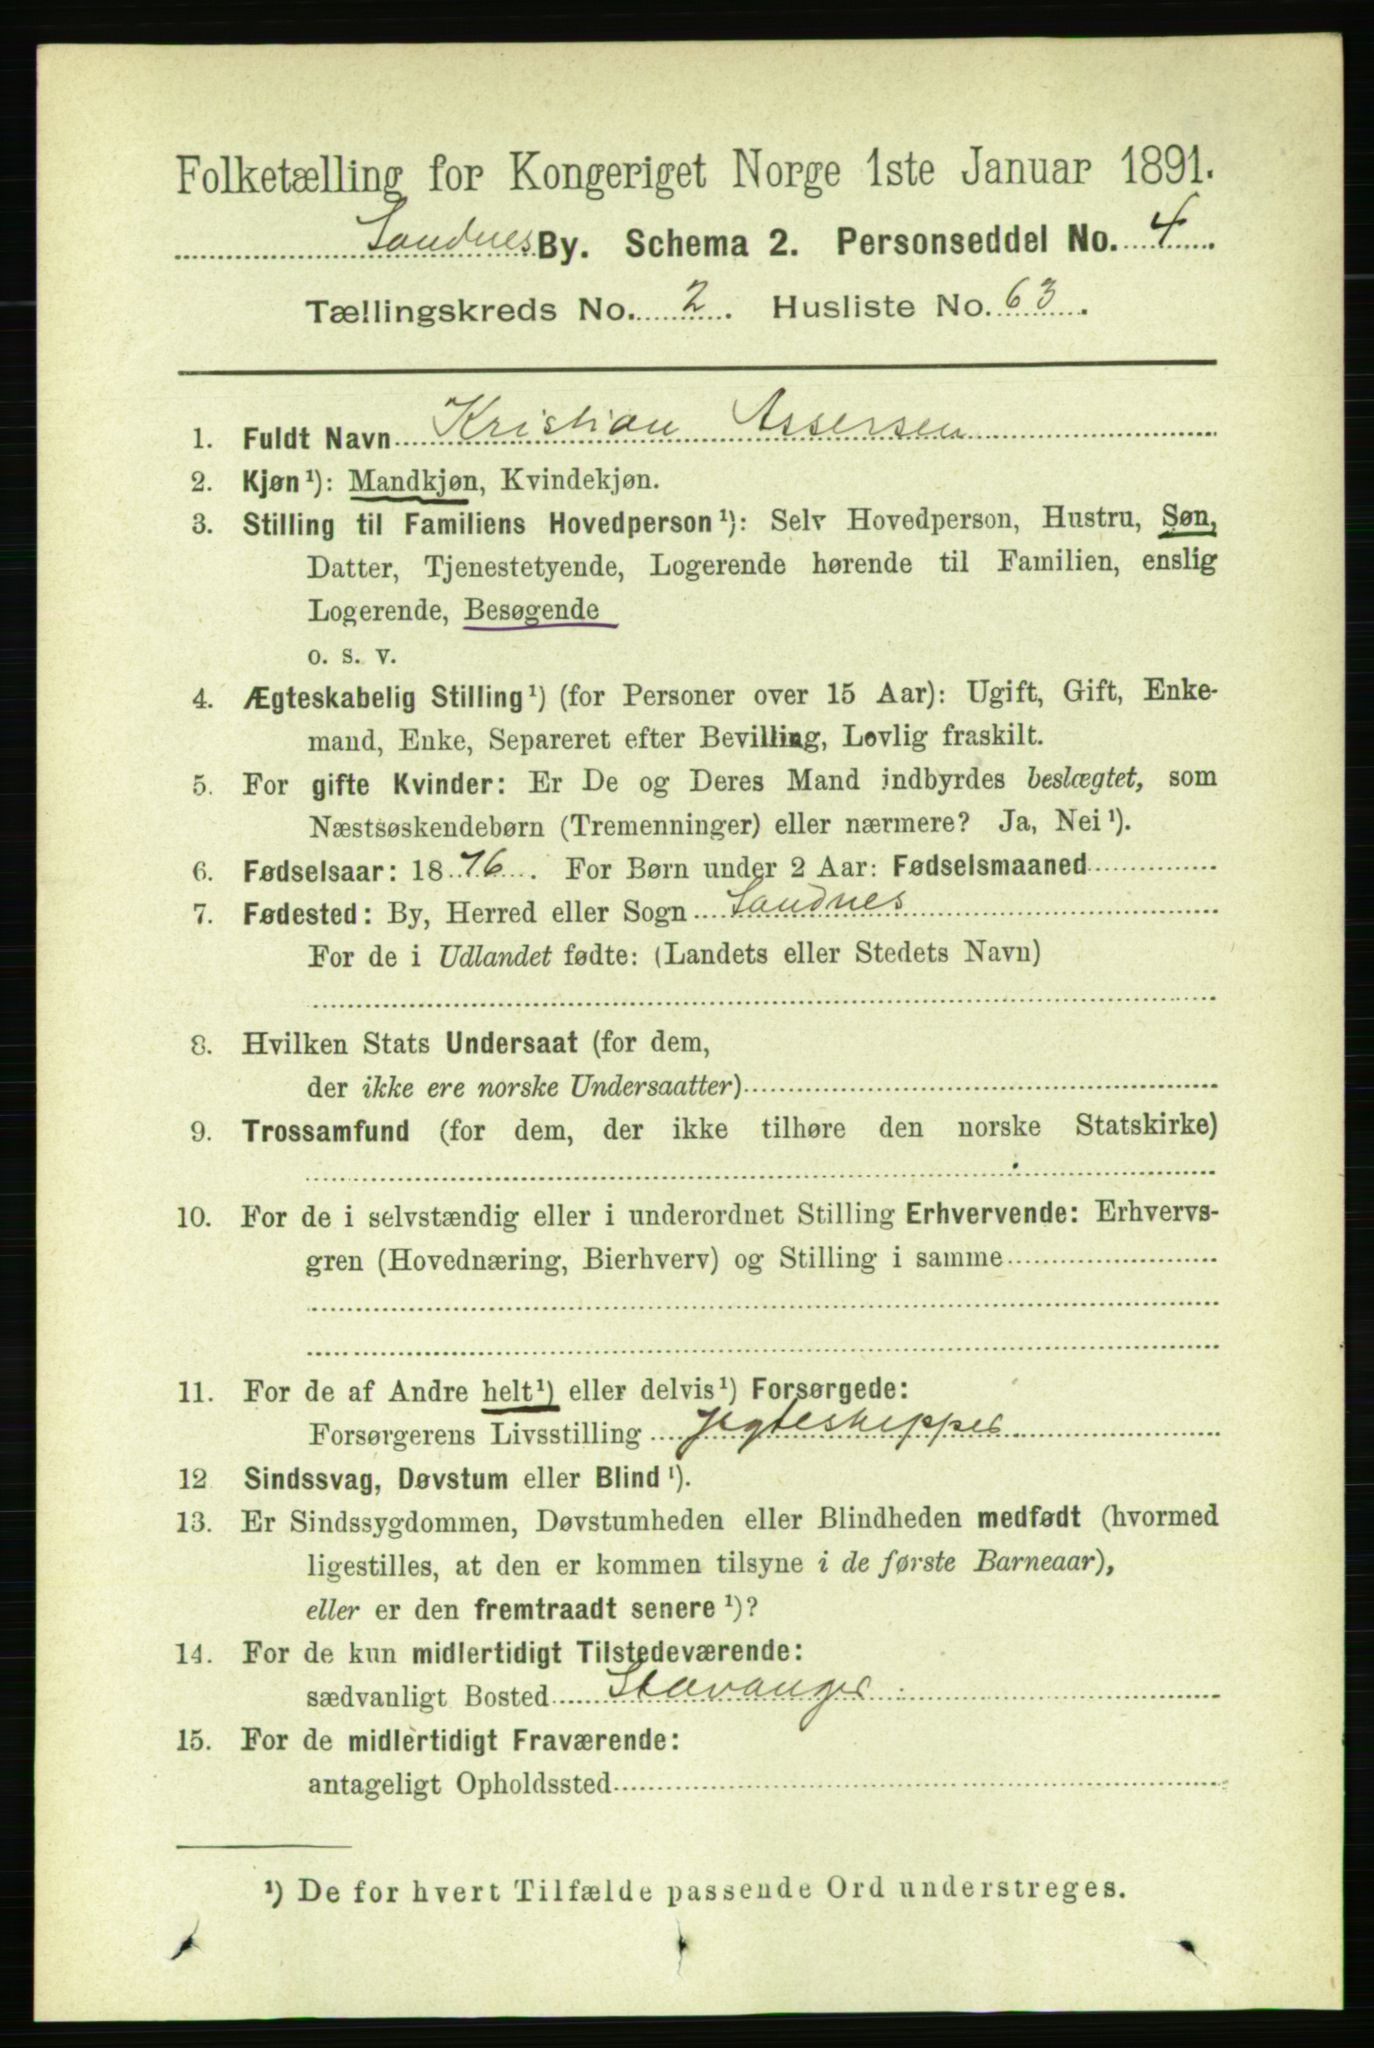 Folketælling for Kongeriget Norge 1ste Januar 1891.
Sandnes By. Schema 2. Personseddel No. 4.
Tællingskreds No. 2. Husliste No. 63.
1. Fuldt Navn Kristian Assersen
2. Kjøn¹): Mandkjøn, Kvindekjøn.
3. Stilling til Familiens Hovedperson¹): Selv Hovedperson, Hustru, Søn,
Datter, Tjenestetyende, Logerende hørende til Familien, enslig
Logerende, Besøgende
o. s. v.
4. Ægteskabelig Stilling¹) (for Personer over 15 Aar): Ugift, Gift, Enke-
mand, Enke, Separeret efter Bevilling, Lovlig fraskilt.
5. For gifte Kvinder: Er De og Deres Mand indbyrdes beslægtet, som
Næstsøskendebørn (Tremenninger) eller nærmere? Ja, Nei¹).
6. Fødselsaar: 1876. For Børn under 2 Aar: Fødselsmaaned
7. Fødested: By, Herred eller Sogn Sandnes
For de i Udlandet fødte: (Landets eller Stedets Navn)
8. Hvilken Stats Undersaat (for dem,
der ikke ere norske Undersaatter)
9. Trossamfund (for dem, der ikke tilhøre den norske Statskirke)
10. For de i selvstændig eller i underordnet Stilling Erhvervende: Erhvervs-
gren (Hovednæring, Bierhverv) og Stilling i samme
11. For de af Andre helt¹) eller delvis¹) Forsørgede:
Forsørgerens Livsstilling Jegteskipper
12 Sindssvag, Døvstum eller Blind¹).
13. Er Sindssygdommen, Døvstumheden eller Blindheden medfødt (hvormed
ligestilles, at den er kommen tilsyne i de første Barneaar),
eller er den fremtraadt senere¹)?
14. For de kun midlertidigt Tilstedeværende:
sædvanligt Bosted Stavanger
15. For de midlertidigt Fraværende:
antageligt Opholdssted
¹) De for hvert Tilfælde passende Ord understreges.